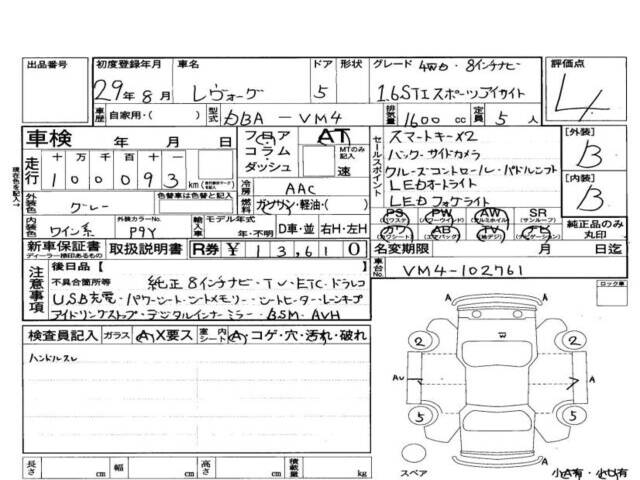 出品番号 初度登録年月 車名 ドア 形状 グレード 4WD・8インチナビ 評価点
29年8月 レヴォーグ 5 1.6STIスポーツアイサイト 4
車歴 自家用・( ) 型式 DBA-VM4 排気量 1600cc 定員 5人
車検 年 月 日 フロア コラム ダッシュ AT MTのみ記入 速
セールスポイント スマートキー×2
バック・サイドカメラ
クルーズコントロール・パドルシフト
LEDオートライト
LEDフォグライト
[外装] B
[内装] B
現在色を記入→
走行 十 万 千 百 十 一
100093 km
冷房 AAC
外装色 グレー 色替車は色替と記入 燃料 ガソリン・軽油・( )
内装色 ワイン系 外装カラーNo. P9Y 輸入車 モデル年式 年・不明 D車・並 右H・左H
PS (パワステ) PW (パワーウインド) AW (アルミホイル) SR (サンルーフ)
カワ (カワシート) AB (エアバッグ) TV (地デジ) ナビ
純正品のみ丸印
新車保証書 ディーラー捺印あるもの 取扱説明書 R券 ¥13,610 名変期限 月 日迄
注意事項 後日品[ ]
車台No. VM4-102761
不具合箇所等 純正8インチナビ・TV・ETC・ドラレコ
USB充電・パワーシート・シートメモリー・シートヒーター・レーンキープ
アイドリングストップ・デジタルインナーミラー・BSM・AVH
ロック車
検査員記入 ガラス A X要ス 室内シート A コゲ・穴・汚れ・破れ
ハンドルスレ
2 A 2
AU A
5 A 5
スペア
小A有・小U有
長さ cm 幅 cm 高さ cm 積載量 kg